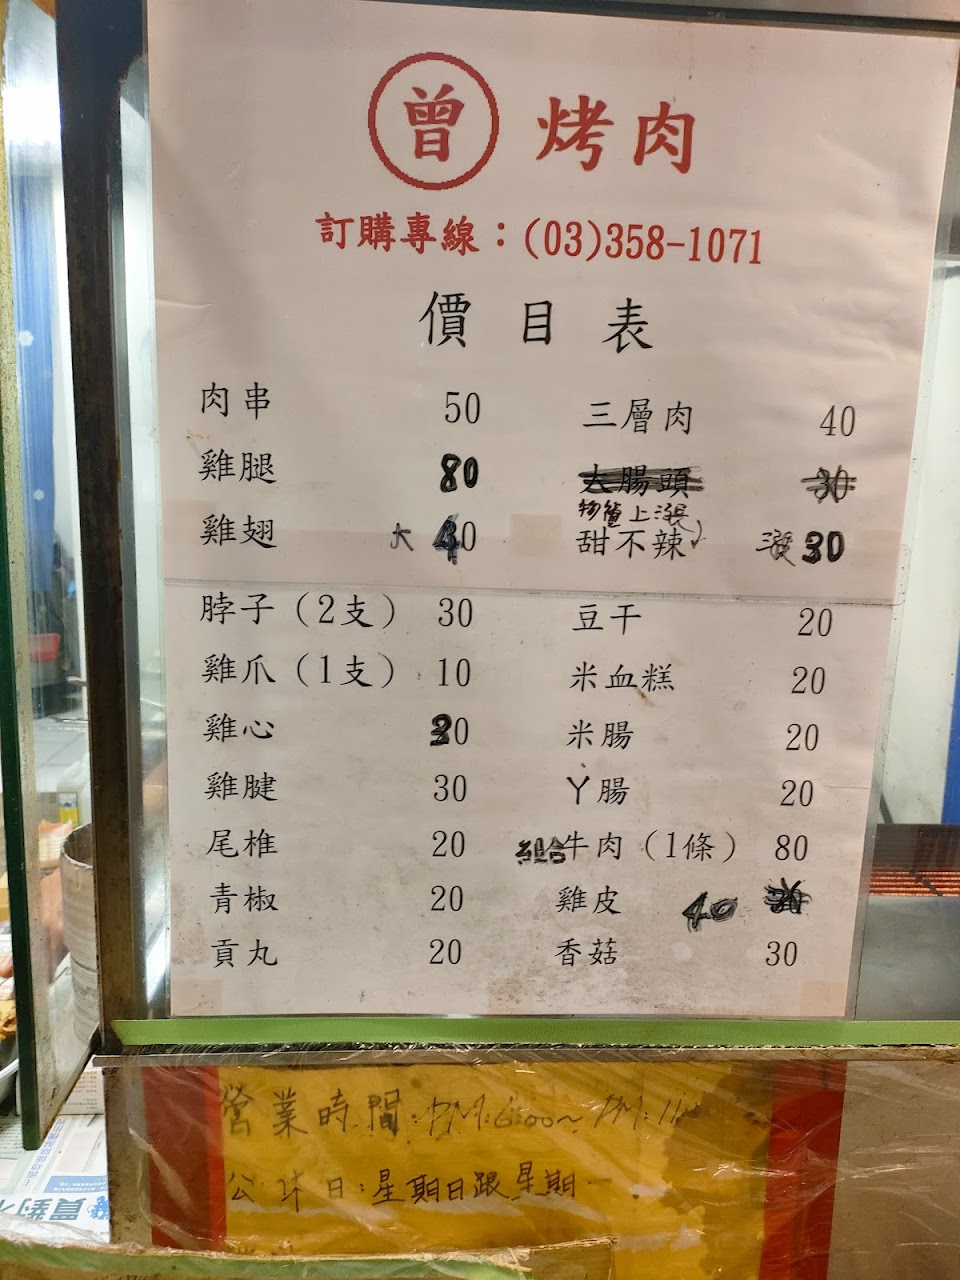 曾 烤肉
訂購專線：(03)358-1071
價目表
肉串 50
雞腿 80
雞翅 大 40
脖子（2支） 30
雞爪（1支） 10
雞心 30
雞腱 30
尾椎 20
青椒 20
貢丸 20
三層肉 40
大腸頭 30
物價上漲
甜不辣 漲 30
豆干 20
米血糕 20
米腸 20
丫腸 20
組合牛肉（1條） 80
雞皮 40 30
香菇 30
營業時間：PM:6:00~PM:11
公休日：星期日跟星期一